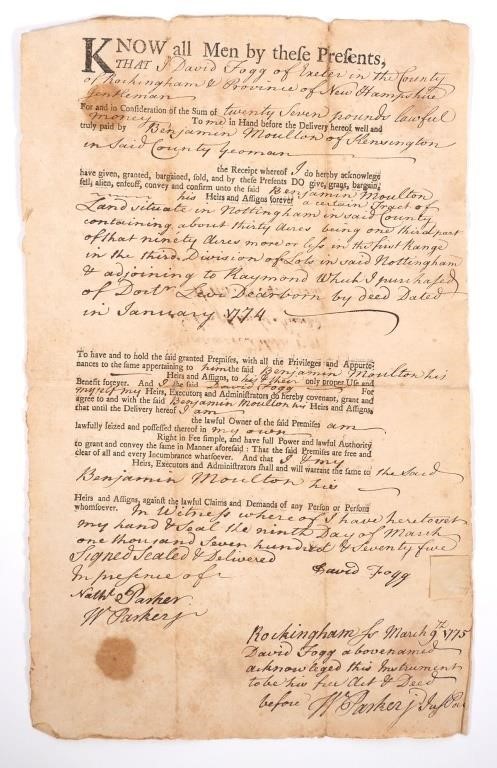 KNOW all Men by theſe Preſents,
THAT I David Fogg of Exeter in the County
of Rockingham & Province of New Hampshire
Gentleman
For and in Conſideration of the Sum of twenty Seven pounds lawful
money To me in Hand before the Delivery hereof well and
truly paid by Benjamin Moulton of Kensington
in Said County Yeoman
the Receipt whereof I do hereby acknowlege
have given, granted, bargained, ſold, and by theſe Preſents DO give, grant, bargain,
ſell, alien, enfeoff, convey and confirm unto the ſaid Benjamin Moulton
his Heirs and Aſſigns forever a certain Tract of
Land situate in Nottingham in said County
containing about thirty Acres being one third part
of that ninety Acres more or less in the first Range
in the third Division of Lots in said Nottingham
& adjoining to Raymond Which I purchased
of Doctr. Levi Dearborn by deed Dated
in January 1774
To have and to hold the ſaid granted Premiſes, with all the Privileges and Appurte-
nances to the ſame appertaining to him the said Benjamin Moulton his
Heirs and Aſſigns, to his & their only proper Uſe and
Benefit forever. And I the said David Fogg For
myself my Heirs, Executors and Adminiſtrators do hereby covenant, grant and
agree to and with the ſaid Benjamin Moulton his Heirs and Aſſigns,
that until the Delivery hereof I am
the lawful Owner of the ſaid Premiſes am
lawfully ſeized and poſſeſſed thereof in my own
Right in Fee ſimple, and have full Power and lawful Authority
to grant and convey the ſame in Manner aforeſaid: That the ſaid Premiſes are free and
clear of all and every Incumbrance whatſoever. And that I & my
Heirs, Executors and Adminiſtrators ſhall and will warrant the ſame to the Said
Benjamin Moulton his
Heirs and Aſſigns, againſt the lawful Claims and Demands of any Perſon or Perſons
whomſoever. In Witness where of I have hereto set
my hand & Seal the ninth Day of March
one thousand Seven hundred & Seventy five
Signed Sealed & Delivered
In presence of David Fogg
Nathl Parker
Wm Parker jr
Rockingham Ss March 9th 1775
David Fogg abovenamed
acknowleged this Instrument
to be his free Act & Deed
before Wm Parker jr Jus Pac